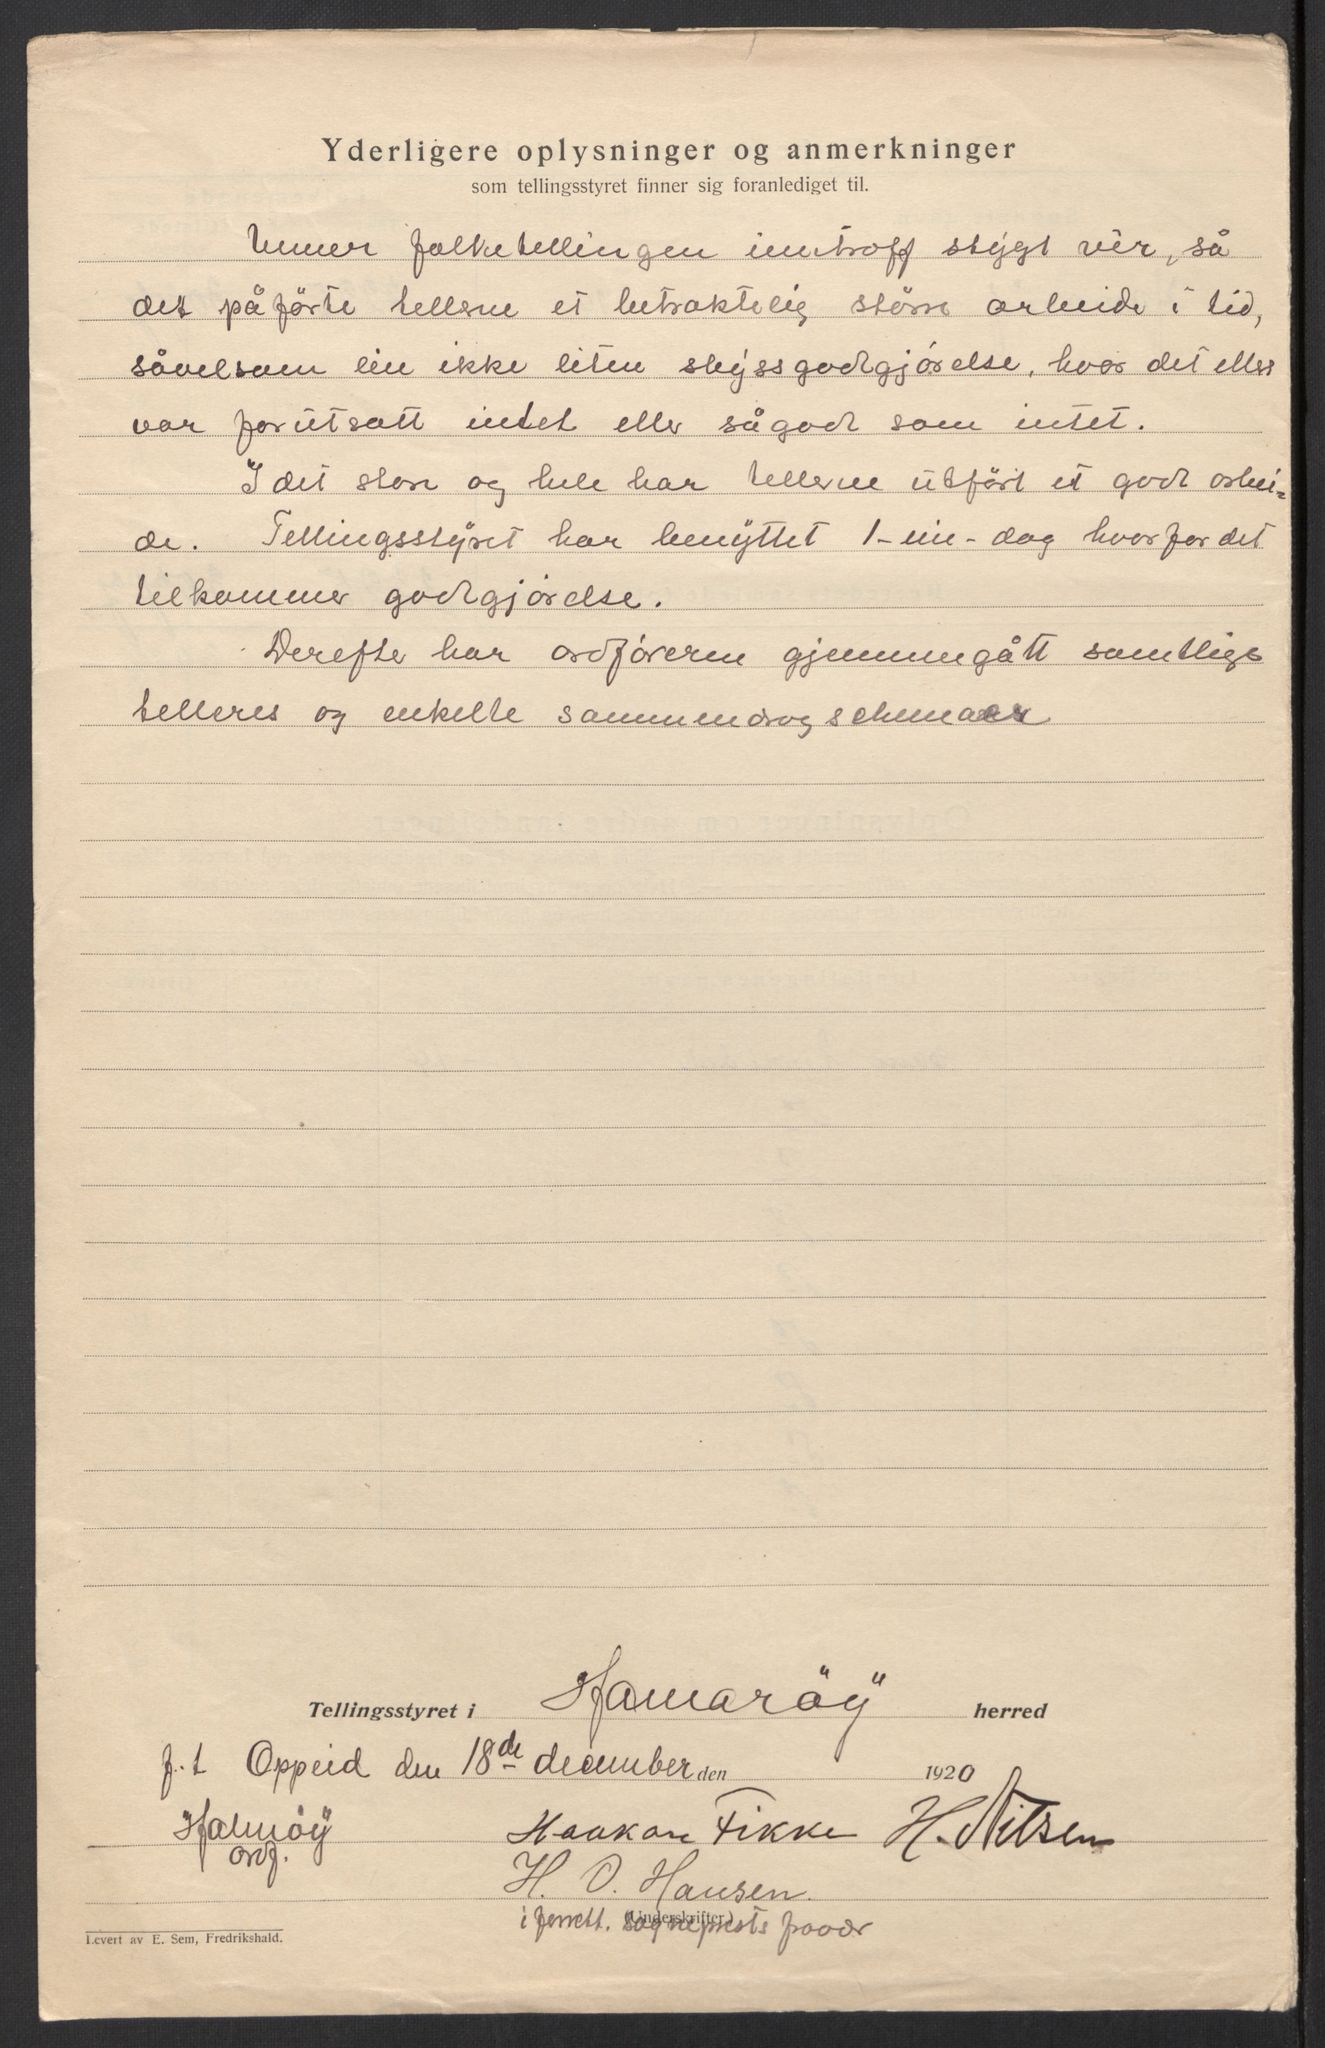 Yderligere oplysninger og anmerkninger
som tellingsstyret finner sig foranlediget til.
Unner folketellingen inntraff stygt vèr, så
det påförte tellerne et betraktelig större arbeide i tid,
såvelsom ein ikke liten skyssgodtgjörelse, hvor det ellers
var forutsatt intet eller sågodt som intet.
I det store og hele har tellerne utfört et godt arbei-
de. Tellingsstyret har benyttet 1-ein-dag hvorfor det
tilkommer godtgjörelse.
Derefter har ordföreren gjennemgått samtlige
telleres og enkelte sammendrag schemaer
Tellingsstyret i Hamaröy herred
p.t Oppeid den 18de december den 1920
Halmöy Haakon Fikke H. Nilsen
ordf. H. O. Hansen.
(Underskrifter.)
i forrett. sogneprests fravær
Levert av E. Sem, Fredrikshald.